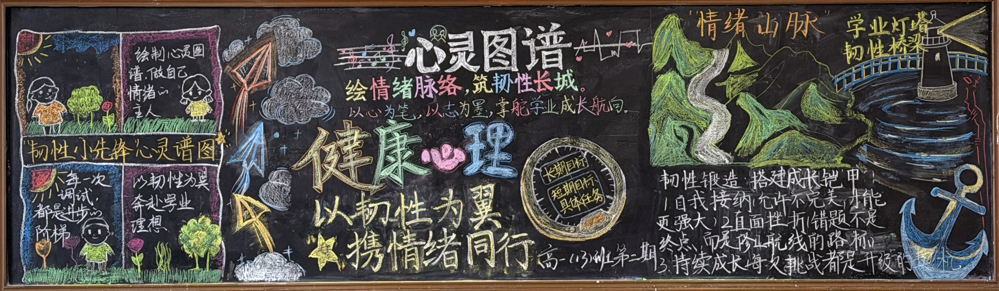 绘制心灵图
谱,做自己
情绪的
主人
"韧性小先锋"心灵谱图
每一次
调试
都是进步的
阶梯
以韧性为翼
奔赴学业
理想
心灵图谱
绘情绪脉络,筑韧性长城。
以心为笔,以志为墨,掌舵学业成长航向。
健康心理
以韧性为翼
携情绪同行
长期目标
短期目标
具体任务
高一(13)班第二期
"情绪山脉"
学业灯塔
韧性桥梁
韧性锻造:搭建成长铠甲
1自我接纳允许不完美才能
更强大;2直面挫折:错题不是
终点,而是 航线的路标
3.持续成长每次挑战都是升级的 机